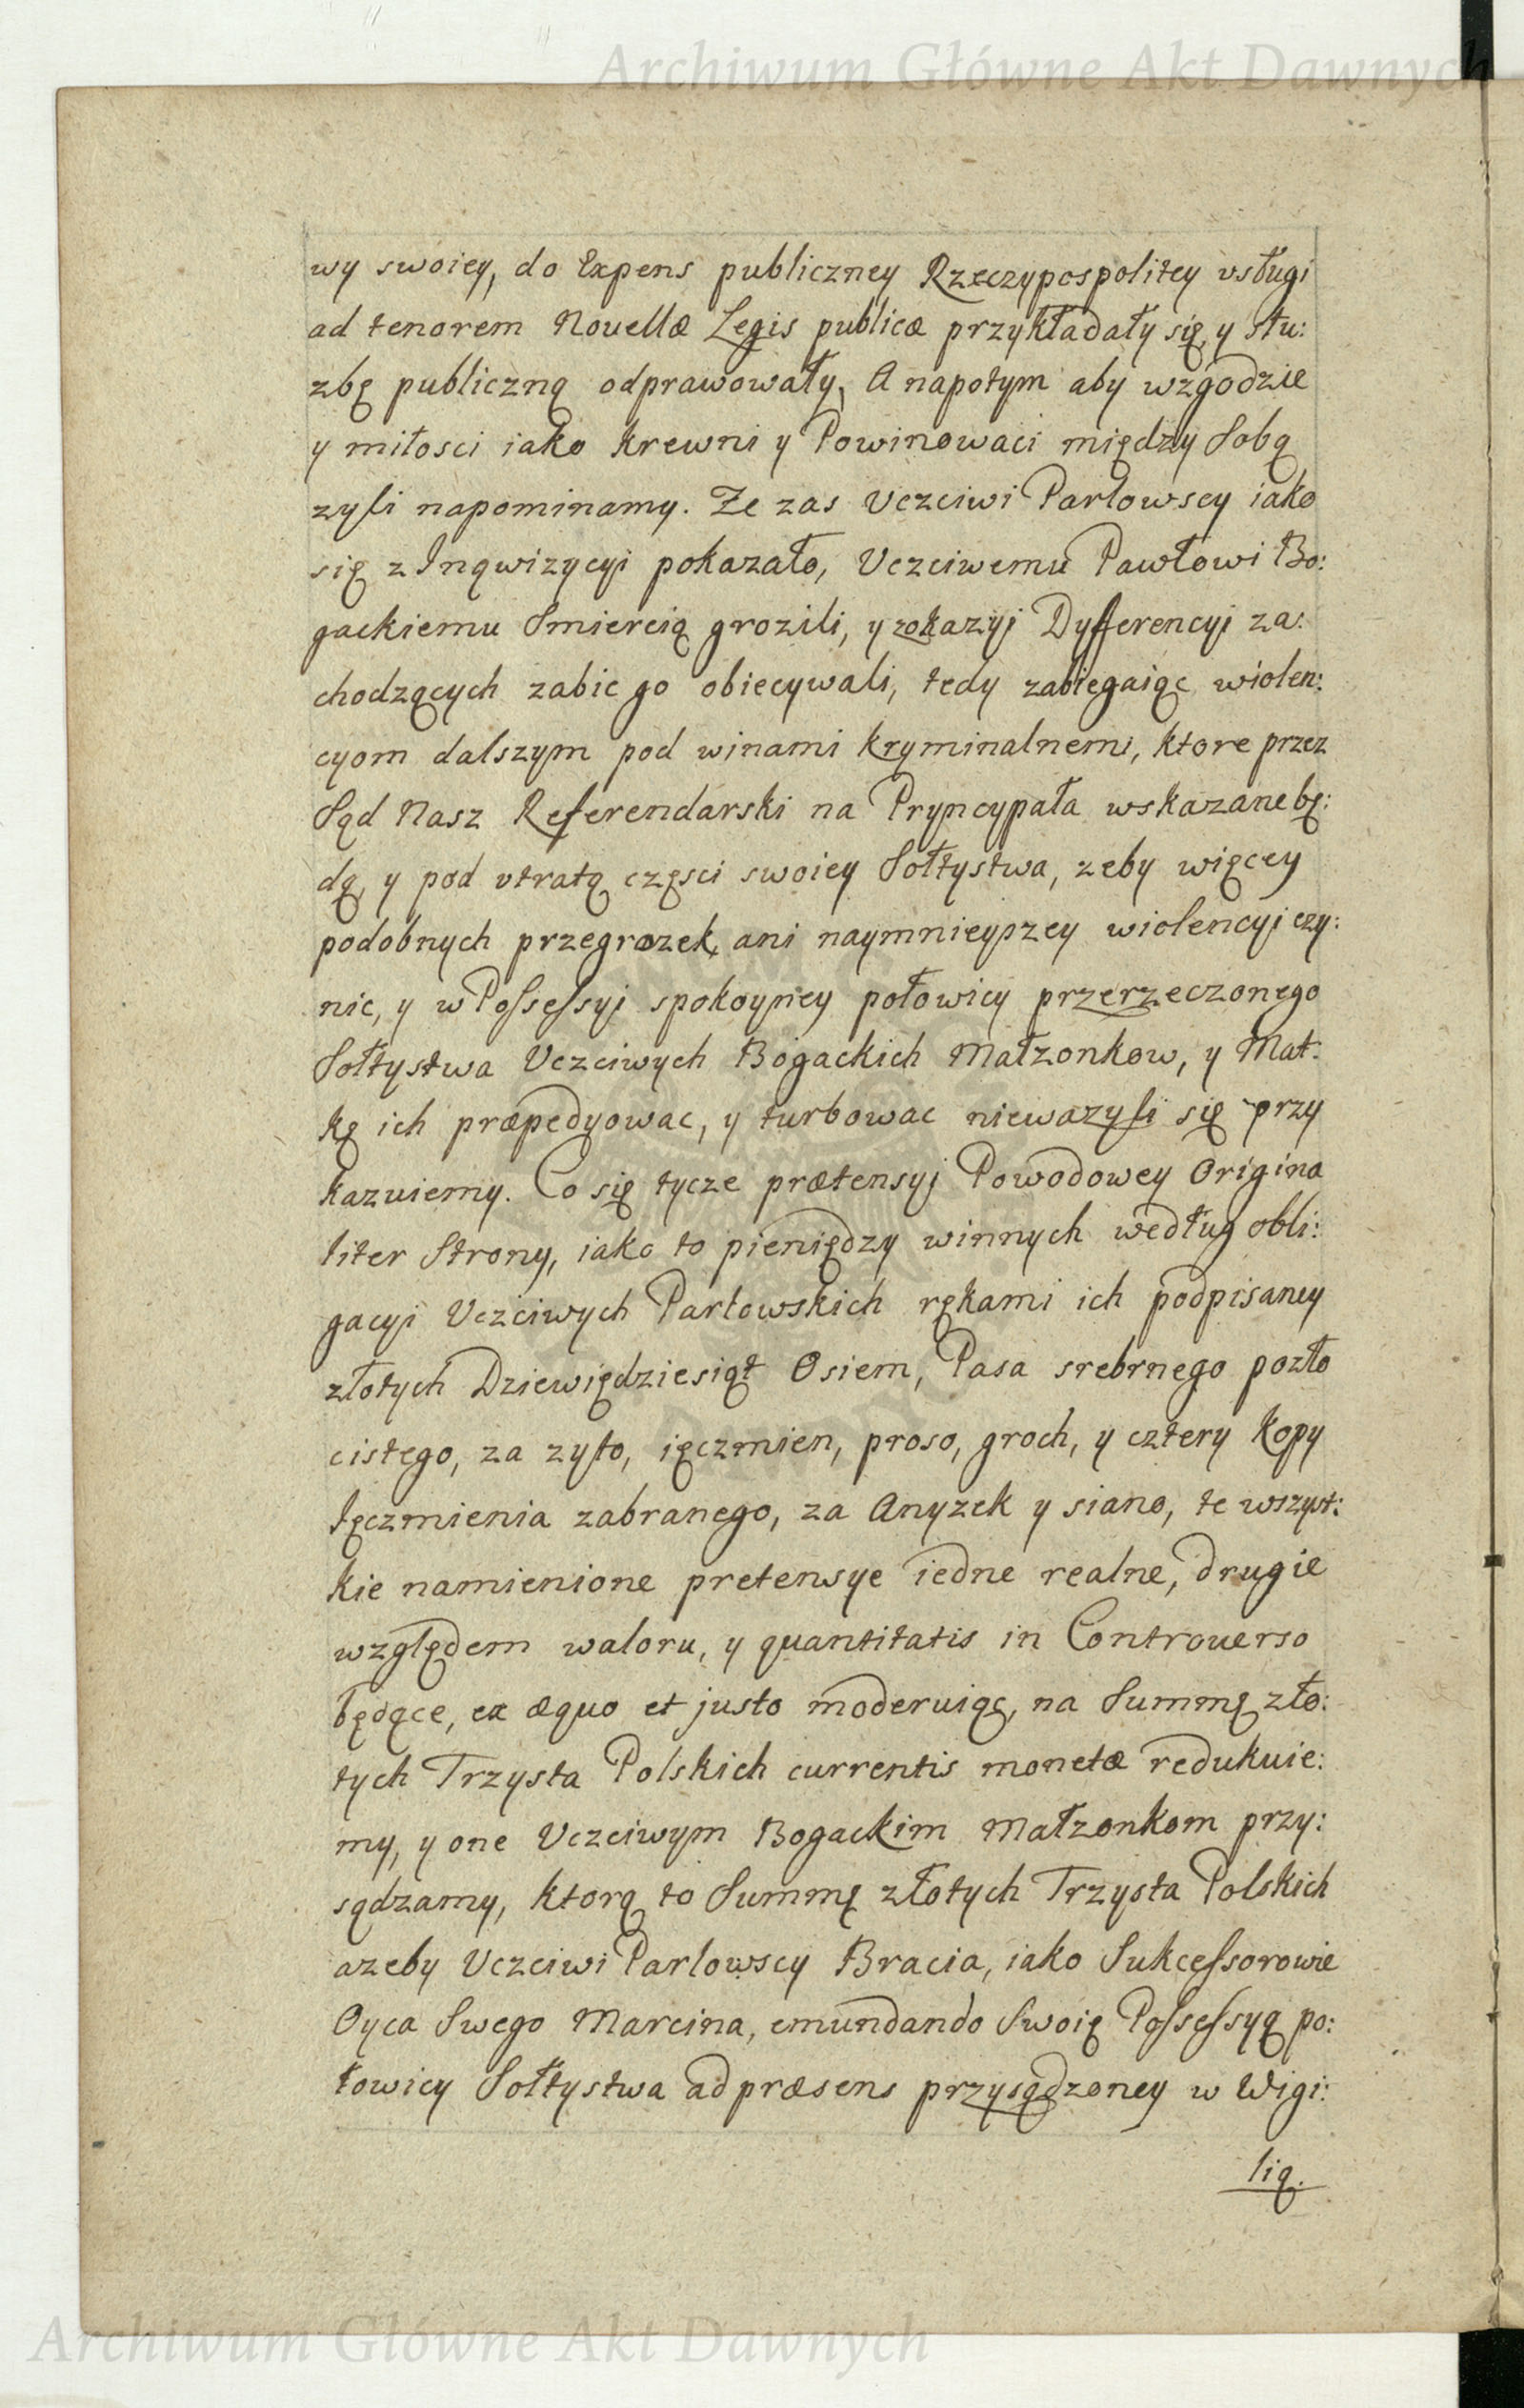 Archiwum Główne Akt Dawnych
wy swoiey, do Expens publiczney Rzeczypospolitey vsługi
ad tenorem Novellæ Legis publicæ przykładały się, y słu:
zbę publiczną odprawowały, A napotym aby wzgodzie
y miłosci iako krewni y Powinowaci między Sobą
zyli napominamy. Ze zas Vczciwi Parłowscy iako
się z Inqwizycyi pokazało, Vczciwemu Pawłowi Bo:
gackiemu Smiercią grozili, y zokazyj Dyfferencyi za:
chodzących zabic go obiecywali, tedy zabiegaiąc wiolen:
cyom dalszym pod winami kryminalnemi, ktore przez
Sąd Nasz Referendarski na Pryncypała wskazane bę:
dą, y pod vtratą częsci swoiey Sołtystwa, zeby więcey
podobnych przegrozek, ani naymnieyszey wiolencyi czy:
nic, y w Possessyj spokoyney połowicy przerzeczonego
Sołtystwa Vczciwych Bogackich Małzonkow, y Mat:
kę ich præpedyowac, y turbowac niewazyli się przy
kazuiemy. Co się tycze prætensyj Powodowey Origina
liter Strony, iako to pieniędzy winnych według obli:
gacyi Vczciwych Parłowskich rękami ich podpisaney
złotych Dziewiędziesiąt Osiem, Pasa srebrnego pozło
cistego, za zyto, ięczmien, proso, groch, y cztery kopy
Ięczmienia zabranego, za Anyzek y siano, te wszyst:
kie namienione pretensye iedne realne, drugie
względem waloru, y quantitatis in Controverso
będące, ex æquo et justo moderuiąc, na Summę zło:
tych Trzysta Polskich currentis monetæ redukuie:
my, y one Vczciwym Bogackim Małzonkom przy:
sądzamy, ktorą to Summę złotych Trzysta Polskich
azeby Vczciwi Parłowscy Bracia, iako Sukcessorowie
Oyca Swego Marcina, emundando Swoię Possessyą po:
łowicy Sołtystwa ad præsens przysądzoney w Wigi:
lią.
Archiwum Główne Akt Dawnych